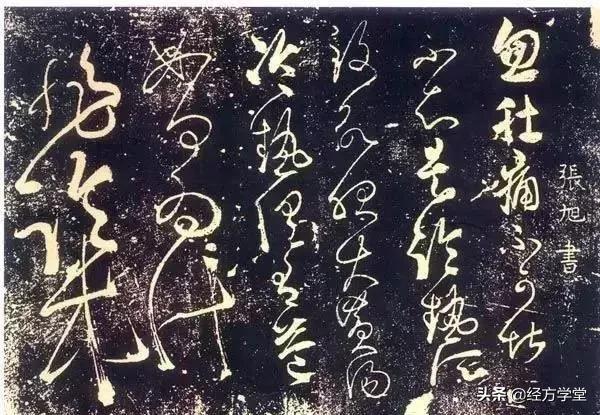 張旭書
忽肚痛不可堪
不知是冷熱所
致欲服大黃湯
冷熱俱有益
如何為計
非臨床
头条 @经方学堂